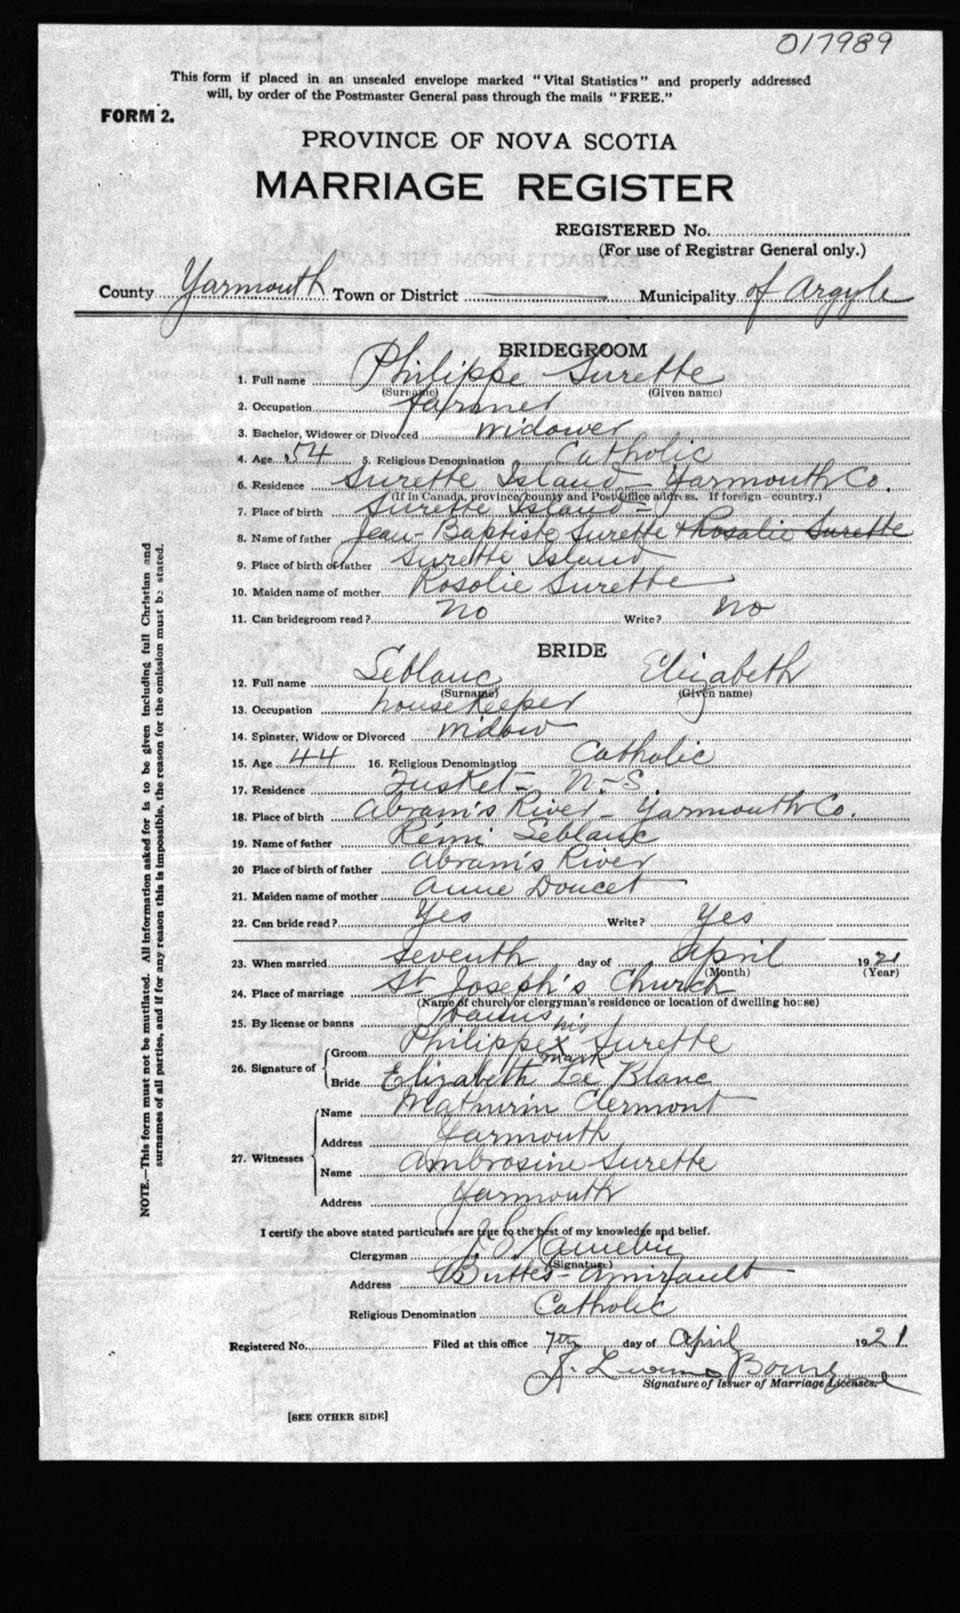 017989
This form if placed in an unsealed envelope marked "Vital Statistics" and properly addressed
will, by order of the Postmaster General pass through the mails "FREE."
FORM 2.
PROVINCE OF NOVA SCOTIA
MARRIAGE REGISTER
REGISTERED No.
(For use of Registrar General only.)
County Yarmouth Town or District Municipality of Argyle
BRIDEGROOM
1. Full name Philippe Surette
(Surname) (Given name)
2. Occupation farmer
3. Bachelor, Widower or Divorced widower
4. Age 54 5. Religious Denomination Catholic
6. Residence Surette Island - Yarmouth Co.
(If in Canada, province, county and Post Office address. If foreign - country.)
7. Place of birth Surette Island -
8. Name of father Jean-Baptiste Surette & Rosalie Surette
9. Place of birth of father Surette Island
10. Maiden name of mother Rosolie Surette
11. Can bridegroom read? no Write? no
BRIDE
12. Full name Leblanc Elizabeth
(Surname) (Given name)
13. Occupation housekeeper
14. Spinster, Widow or Divorced widow
15. Age 44 16. Religious Denomination Catholic
17. Residence Tusket - N.-S.
18. Place of birth Abram's River - Yarmouth Co.
19. Name of father Rémi Leblanc
20 Place of birth of father Abram's River
21. Maiden name of mother Anne Doucet
22. Can bride read? Yes Write? Yes
23. When married seventh day of April 1921
(Month) (Year)
24. Place of marriage St Joseph's Church
(Name of church or clergyman's residence or location of dwelling house)
25. By license or banns banns
his
26. Signature of Groom Philippe X Surette
mark
Bride Elizabeth Le Blanc
27. Witnesses Name Mathurin Clermont
Address Yarmouth
Name Ambrosine Surette
Address Yarmouth
I certify the above stated particulars are true to the best of my knowledge and belief.
Clergyman
(Signature)
Address Buttes-Amirault
Religious Denomination Catholic
Registered No. Filed at this office 7th day of April 1921
Signature of Issuer of Marriage Licenses.
[SEE OTHER SIDE]
NOTE.—This form must not be mutilated. All information asked for is to be given including full Christian and
surnames of all parties, and if for any reason this is impossible, the reason for the omission must be stated.